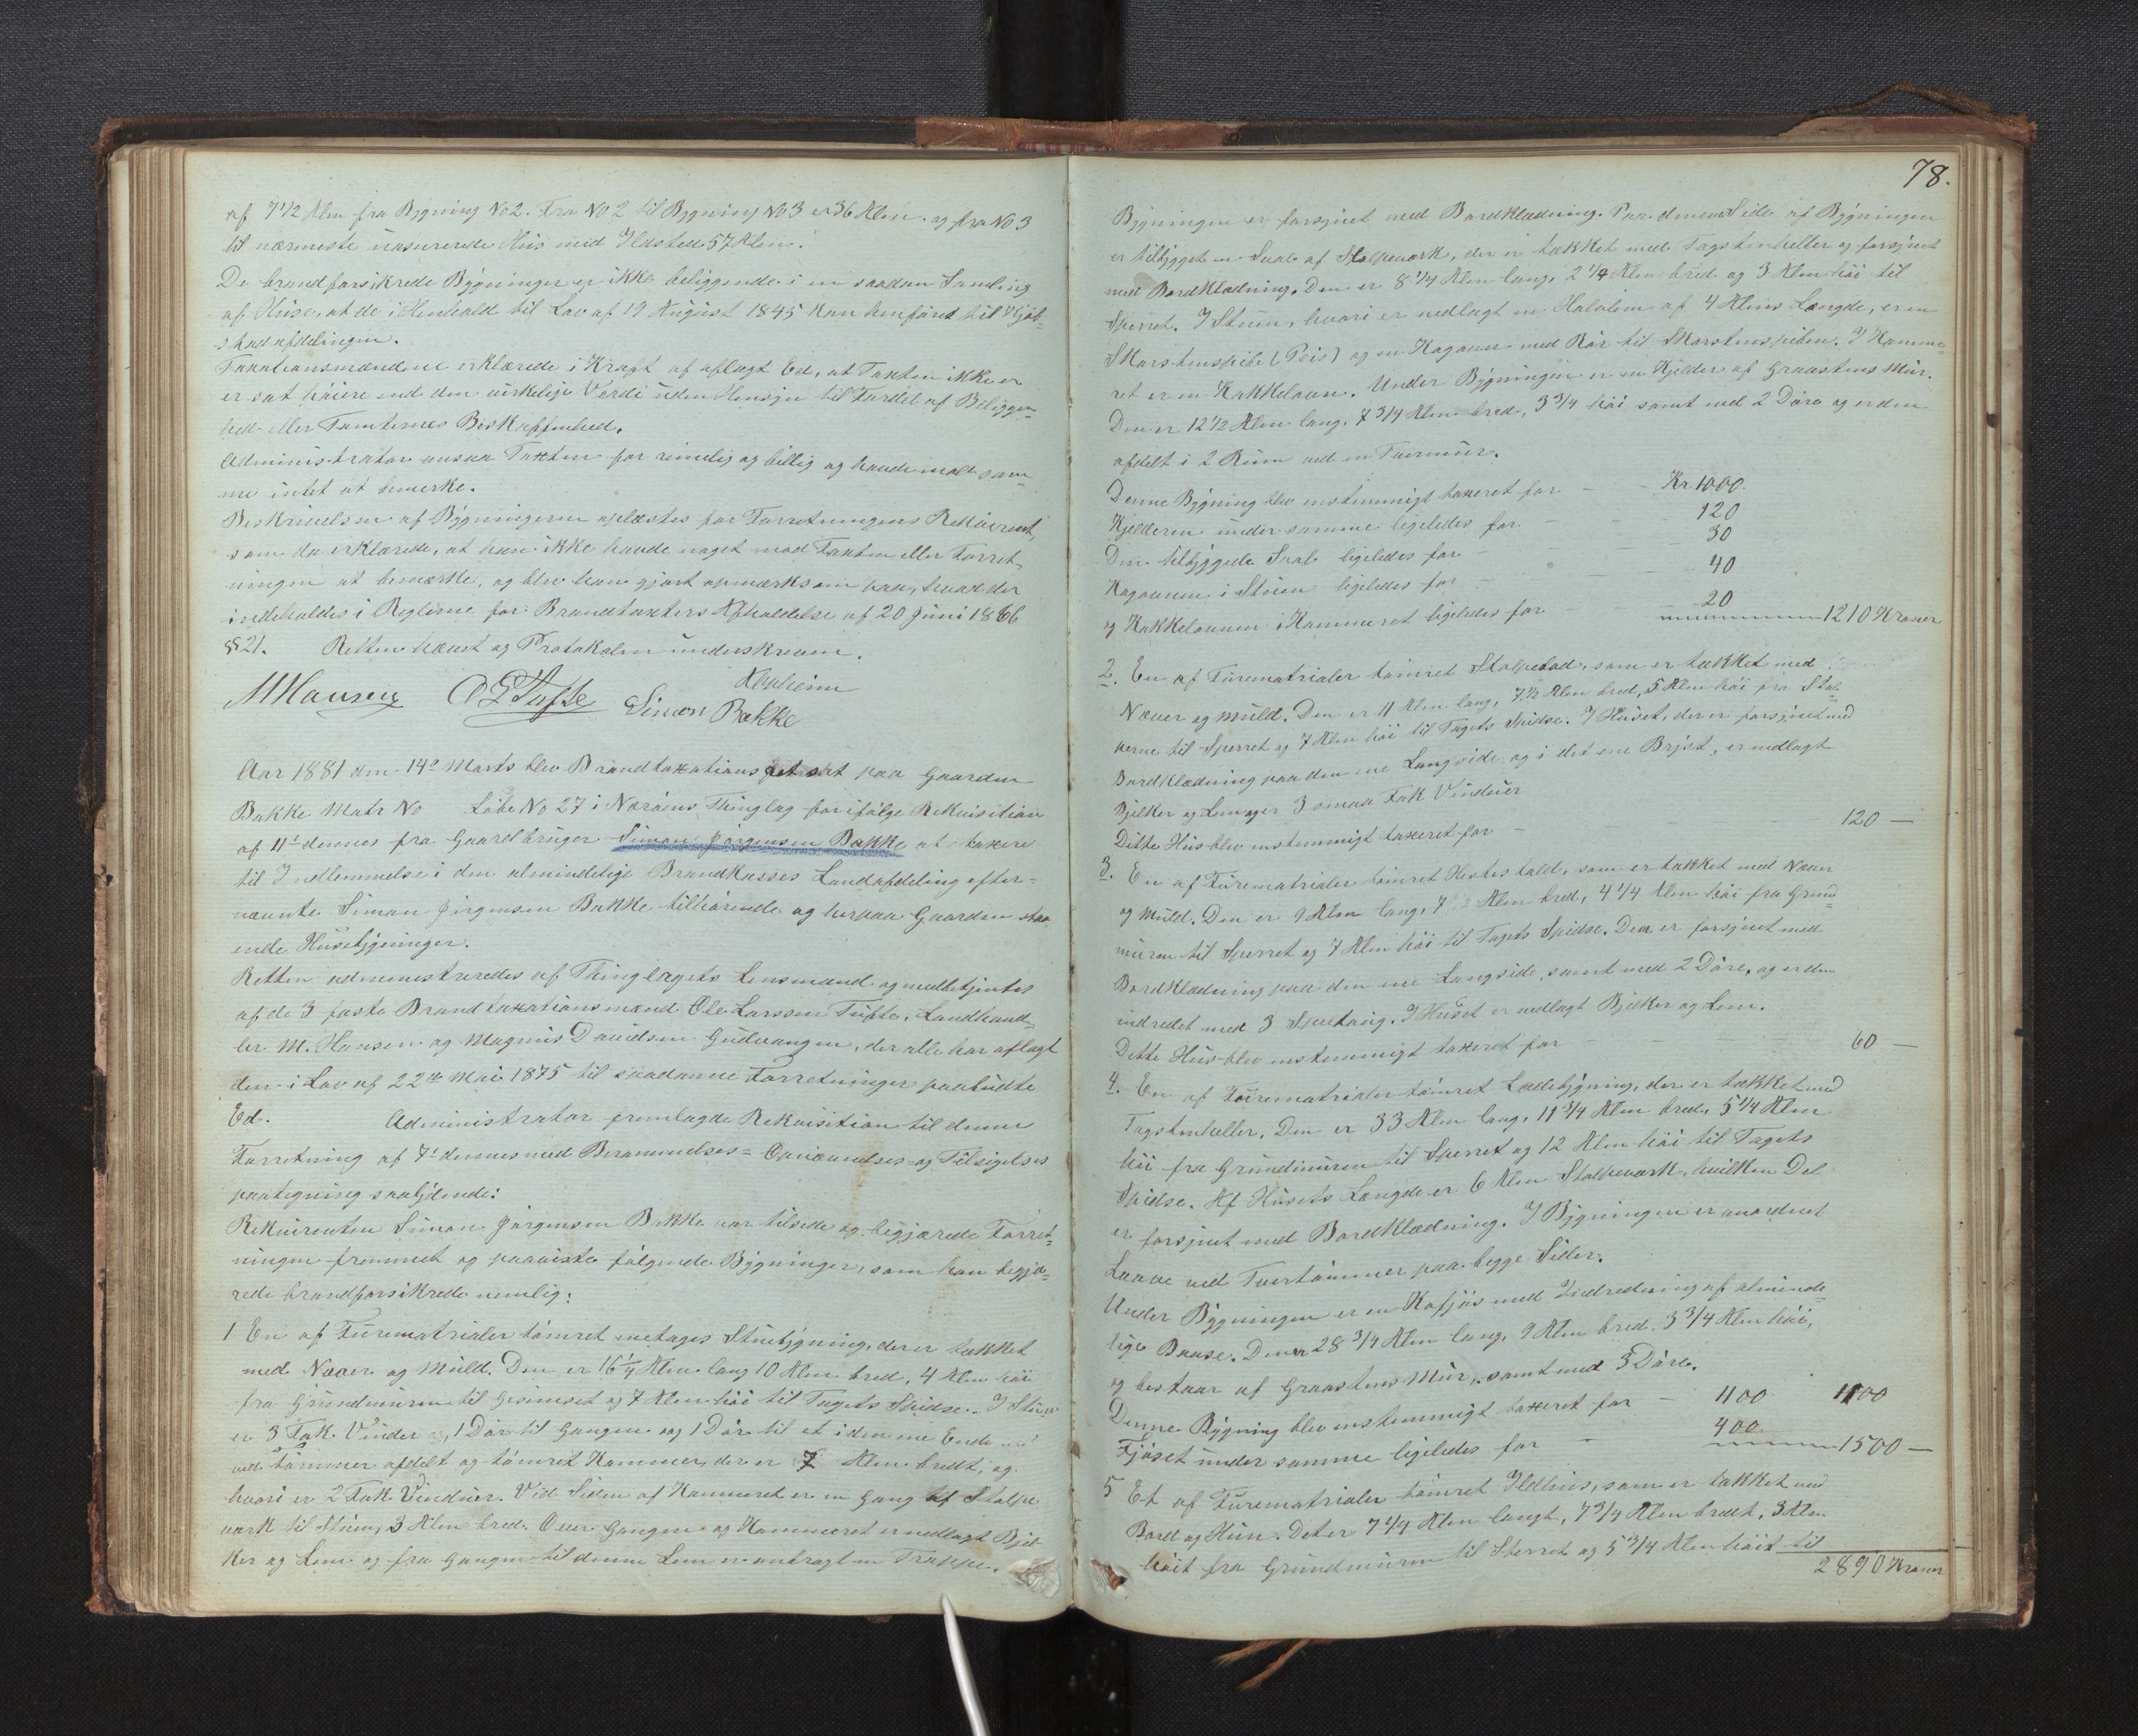 af 7 1/2 Alen fra Bygning No 2. Fra No 2 til Bygning No 3 er 36 Alen og fra No 3
til nærmeste uasurerede Hus med Ildsted 57 Alen.
De brandforsikrede Bygninger er ikke beliggende i en saadan Samling
af Huse, at de i Henhold til Lov af 19 August 1845 kan henføres til Kjøb-
stadafdelingen.
Taxationsmændene erklærede i Kraft af aflagt Ed, at Taxten ikke er
er sat høiere end den virkelige Værdi uden Hensyn til Fordel af Beliggen-
hed eller Tomternes Beskaffenhed.
Administrator ansaa Taxten for rimelig og billig og havde mod sam-
me intet at bemerke.
Beskrivelsen af Bygningerne oplæstes for Forretningens Rekvirent,
som da erklærede, at han ikke havde noget mod Taxten eller Forret-
ningen at bemærke, og blev han gjort opmærksom paa, hvad der
indeholdes i Reglerne for Brandtaxters Afholdelse af 20 Juni 1866
§ 21. Retten hævet og Protokolen underskreven.
M Hansen O L Tufte Simon Bakke
Aar 1881 den 14de Marts blev Brandtaxationsret sat paa Gaarden
Bakke Matr No Løbe No 27 i Nærøens Thinglag for ifølge Rekvisition
af 11t dennes fra Gaardbruger Simon Jørgensen Bakke at taxere
til Indlemmelse i den almindelige Brandkasses Landafdeling efter-
nævnte Simon Jørgensen Bakke tilhørende og herpaa Gaarden staa
ende Husebygninger.
Retten administreredes af Thinglagets Lensmand og medbetjentes
af de 3 faste Brandtaxationsmænd Ole Larssen Tufte, Landhand-
ler M. Hansen og Magnus Davidsen Gudvangen, der alle har aflagt
den i Lov af 22de Mai 1875 til saadanne Forretninger paabudte
Ed. Administrator fremlagde Rekvisition til denne
Forretning af 7' dennes med Berammelses- Opnævnelses- og Tilsigelses
paategning saalydende:
Rekvirenten Simon Jørgensen Bakke var tilstede og begjærede Forret-
ningen fremmet og paaviste følgende Bygninger, som han begjæ-
rede brandforsikrede nemlig:
1 En af Furematrialer tømret enetages Stuebygning, der er tækket
med Næver og Muld. Den er 16 1/4 Alen lang 10 Alen bred, 4 Alen høi
fra Grundmuren til Gesimset og 7 Alen høi til Tagets Spidse. I Stuen
er 3 Fak Vinduer, 1 Dør til Gangen og 1 Dør til et i den ene Ende
ved Tømmer afdelt og tømret Kammer, der er 7 Alen bredt, og
hvori er 2 Fak Vinduer. Ved Siden af Kammeret er en Gang af Stolpe
værk til Stuen, 3 Alen bred. Over Gangen og Kammeret er nedlagt Bjel-
ker og Lem og fra Gangen til denne Lem er anbragt en Trappe.
78.
Bygningen er forsynet med Bordklædning. Paa den ene Side af Bygningen
er tilbygget en Sval af Stolpeværk, der er tækket med Tagstenheller og forsynet
med Bordklædning. Den er 8 1/4 Alen lang, 2 1/4 Alen bred og 3 Alen høi til
Sperret. I Stuen, hvori er nedlagt en Halvlem af 4 Alens Længde, er en
Skorstenspibe (Peis) og en Kogeovn med Rør til Skorstenspiben. I Kamme-
ret er en Kakkelovn. Under Bygningen er en Kjelder af Graastens Mur.
Den er 12 1/2 Alen lang, 7 3/4 Alen bred, 3 3/4 høi samt med 2 Døre og er den
afdelt i 2 Rum ved en Tvermur.
Denne Bygning blev enstemmigt taxeret for Kr 1000
Kjelderen under samme ligeledes for 120
Den tilbyggede Sval ligeledes for 30
Kogeovnen i Stuen ligeledes for 40
og Kakkelovnen i Kammeret ligeledes for 20 1210 Kroner
2. En af Furematrialer tømret Stolpebod, som er tækket med
Næver og Muld. Den er 11 Alen lang, 7 1/2 Alen bred, 5 Alen høi fra Stab-
berne til Sperret og 7 Alen høi til Tagets Spidse. I Huset, der er forsynet med
Bordklædning paa den ene Langside og i det ene Bryst, er nedlagt
Bjelker og Lem og er 3 smaa Fak Vinduer
Dette Hus blev enstemmigt taxeret for 120 —
3. En af Furematrialer tømret Hestestald, som er tækket med Næver
og Muld. Den er 9 Alen lang, 7 Alen bred, 4 1/4 Alen høi fra Grund-
muren til Sperret og 7 Alen høi til Tagets Spidse. Den er forsynet med
Bordklædning paa den ene Langside, samt med 2 Døre, og er den
indredet med 3 Spiltaug. I Huset er nedlagt Bjelker og Lem.
Dette Hus blev enstemmigt taxeret for 60 —
4. En af Furematrialer tømret Ladebygning, der er tækket med
Tagstenheller. Den er 33 Alen lang, 11 3/4 Alen bred, 5 1/4 Alen
høi fra Grundmuren til Sperret og 12 Alen høi til Tagets
Spidse. Af Husets Længde er 6 Alen Stolpeværk, hvilken Del
er forsynet med Bordklædning. I Bygningen er anordnet
Laave ved Tvertømmer paa begge Sider.
Under Bygningen er en Kofjøs med Indredning af alminde-
lige Baase. Den er 28 3/4 Alen lang, 9 Alen bred, 3 3/4 Alen høi,
og bestaar af Graastens Mur, samt med 3 Døre.
Denne Bygning blev enstemmigt taxeret for 1100 1100
Fjøset under samme ligeledes for 400 1500 —
5 Et af Furematrialer tømret Ildhus, som er tækket med
Bord og Hun. Det er 7 1/4 Alen langt, 7 3/4 Alen bredt, 3 Alen
høit fra Grundmuren til Sperret og 5 3/4 Alen høit til
2890 Kroner